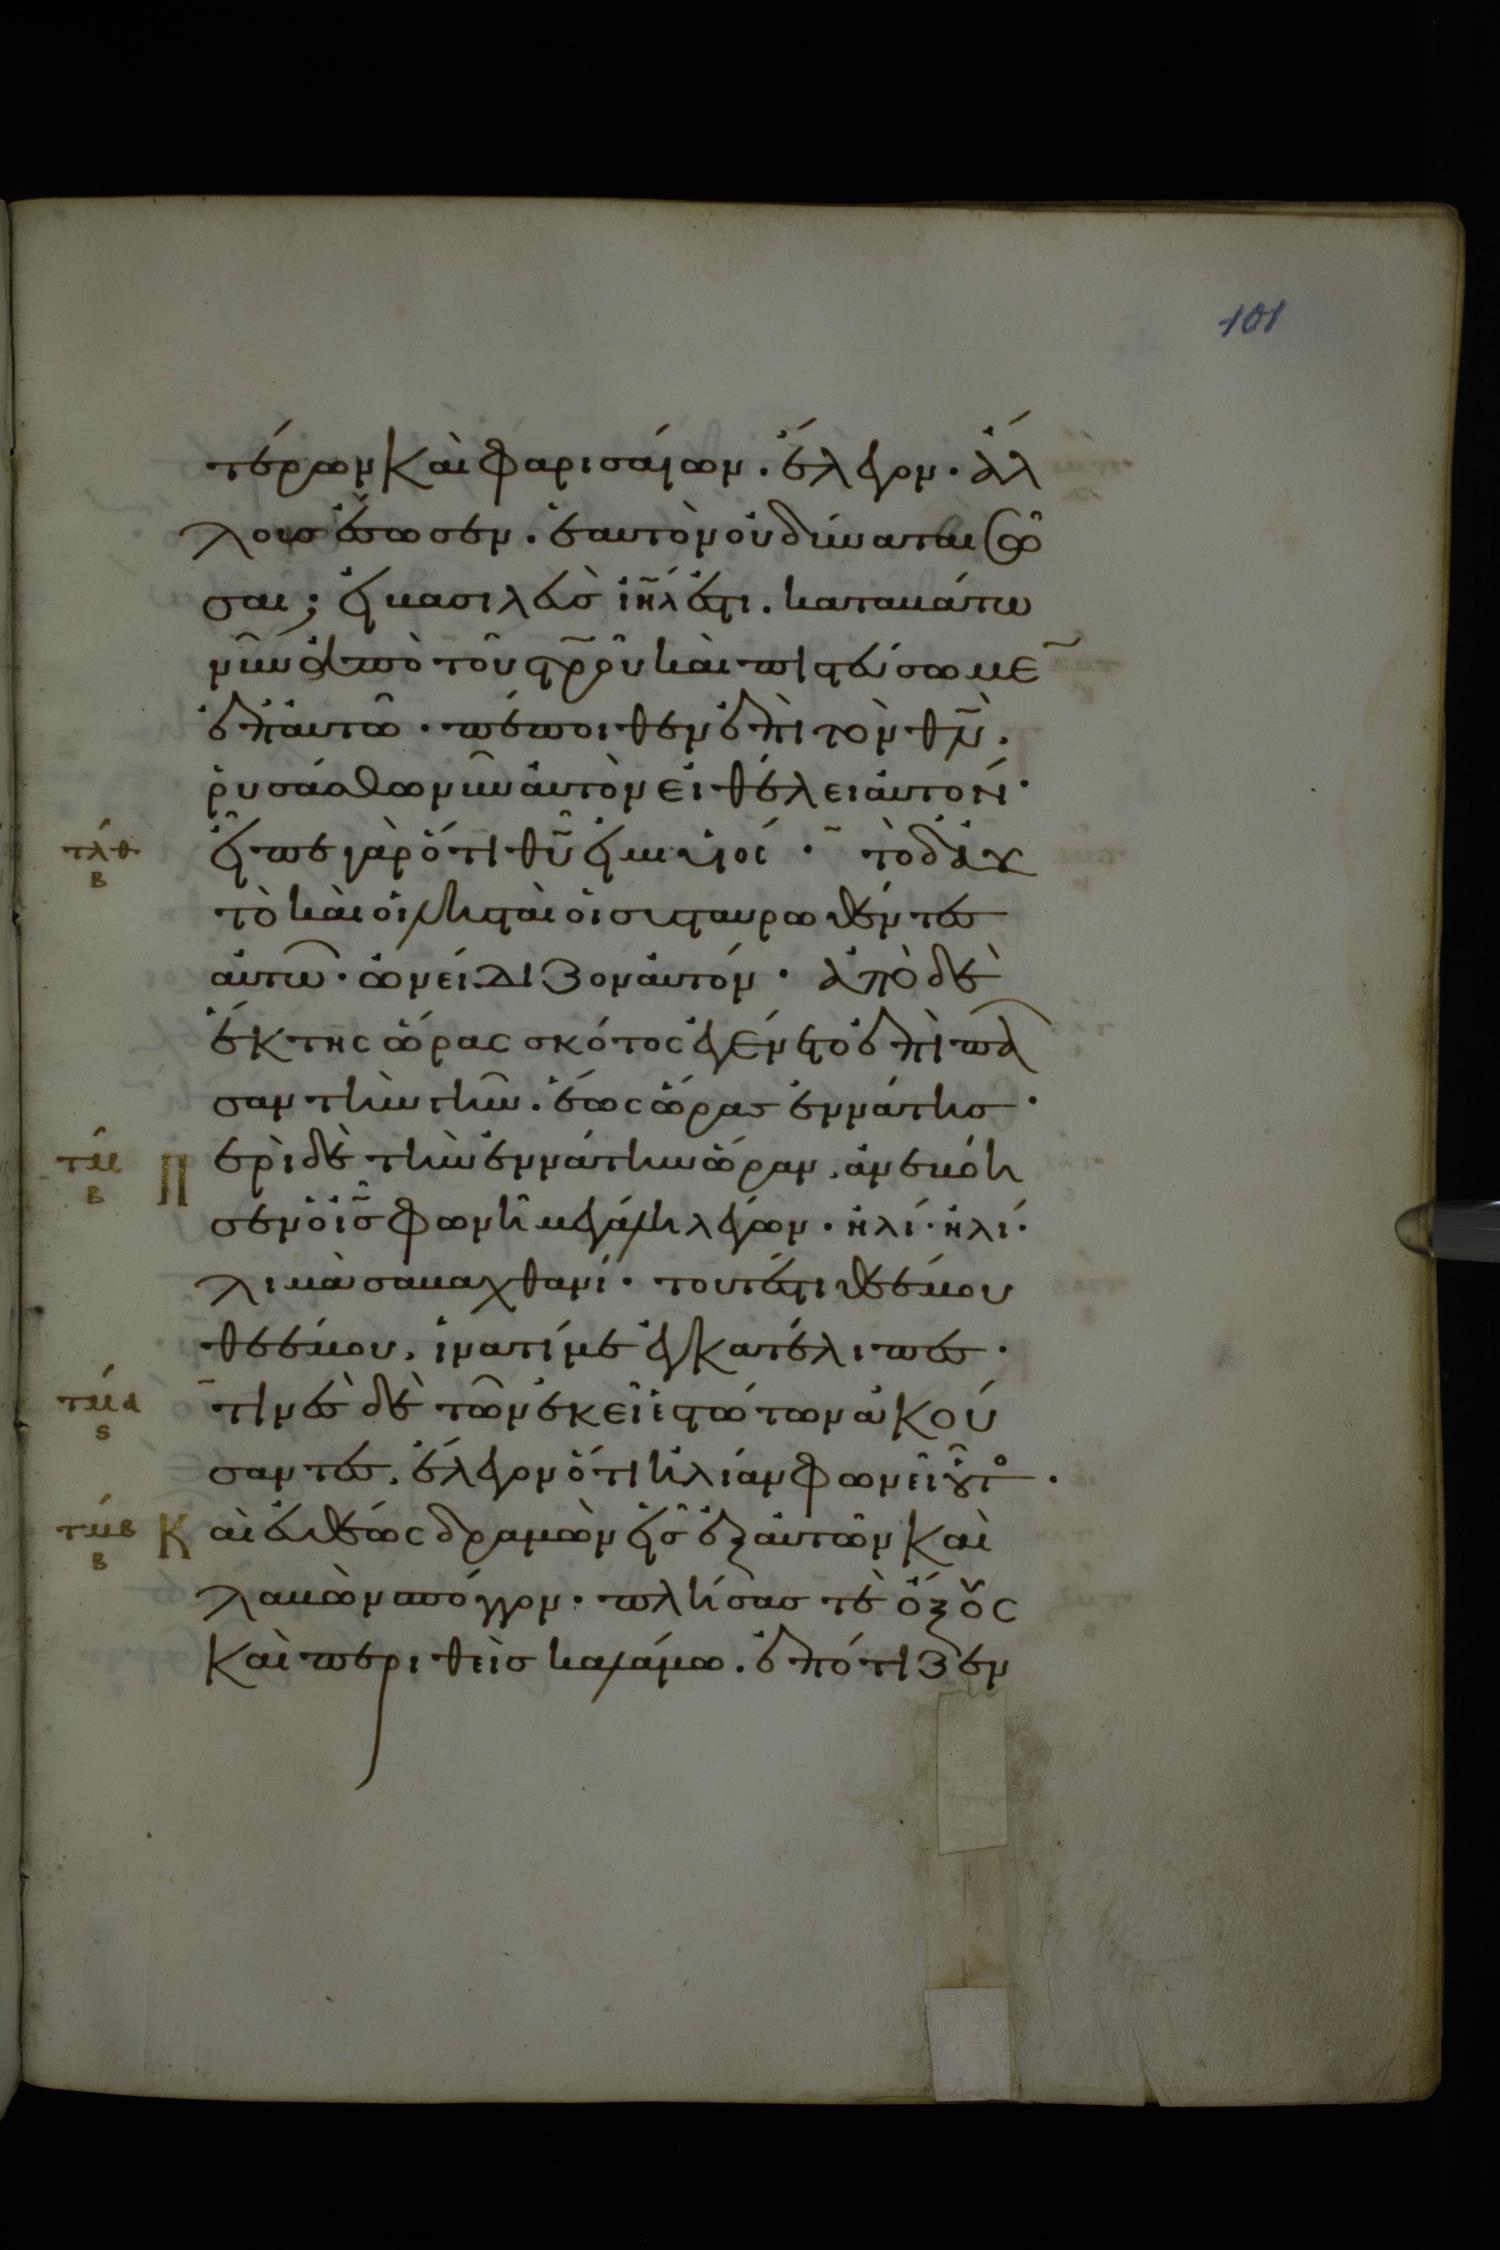 101
τέρων καὶ φαρισαίων. ἔλεγον· ἄλ
λους ἔσωσεν. ἑαυτὸν οὐ δύναται σῶ
σαι; εἰ βασιλεὺς ἰη̅λ ἐστι. καταβάτω
νῦν ἀπὸ τοῦ στ̅ρ̅οῦ καὶ πιστεύσωμε̅
ἐπ' αὐτῶ· πέποιθεν ἐπὶ τὸν θ̅ν̅.
ῥυσάσθω νῦν αὐτὸν εἰ θέλει αὐτόν·
τλθ εἶπε γὰρ ὅτι θ̅υ̅ εἰμι υἱός· τὸ δ' αὐ
β
τὸ καὶ οἱ λησταὶ οἱ συσταυρωθέντες
αὐτῶ· ὠνείδιζον αὐτόν· ἀπὸ δὲ
ἕκτης ὥρας σκότος ἐγένετο ἐπὶ πᾶ
σαν τὴν γῆν. ἕως ὥρας ἐννάτης·
τμ Περὶ δὲ τὴν ἐννάτην ὥραν, ἀνεβόη
β
σεν ὁ ι̅ς̅ φωνῆ μεγάλη λέγων· ἠλί· ἠλί·
λιμὰ σαβαχθανί· τουτέστι θεέ μου
θεέ μου, ἱνατί με ἐγκατέλιπες·
τμα τινὲς δὲ τῶν ἐκεῖ ἑστώτων ἀκού
ϛ
σαντες, ἔλεγον ὅτι ἠλίαν φωνεῖ οὗτο·
τμβ Καὶ εὐθέως δραμὼν εἷς ἐξ αὐτῶν καὶ
β
λαβὼν σπόγγον· πλήσας τὲ ὄξους
καὶ περιθεὶς καλάμω. ἐπότιζεν